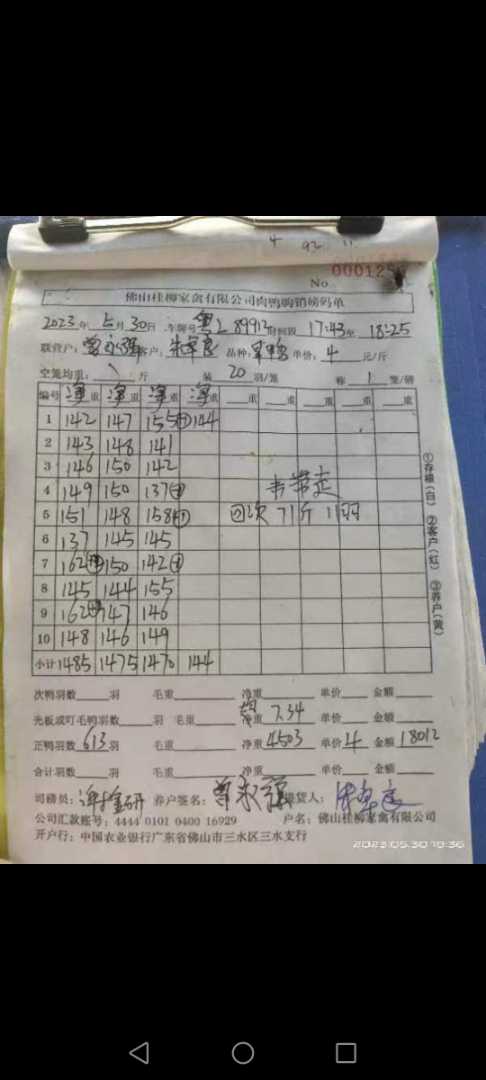 No 000125
佛山桂柳家禽有限公司肉鸭购销磅码单
2023年 5月 30日 车牌号 粤L 89912 时间段 17:43至 18:25
联营户: 客户: 品种: 单价: 4 元/斤
空笼均重: 斤 装 20 羽/笼 称 1 笼/磅
编号 净重 净重 净重 净重 重 重 重 重 重
1 142 147 155 144
2 143 148 141
3 146 150 142
4 149 150 137
5 151 148 158 回次 71斤 11羽
6 137 145 145
7 162 150 142
8 145 144 155
9 162 147 146
10 148 146 149
小计 1485 1475 1470 144
①存根(白) ②客户(红) ③养户(黄)
次鸭羽数 羽 毛重 净重 单价 金额
光板或叮毛鸭羽数 羽 毛重 净重 7.34 单价 金额
正鸭羽数 613 羽 毛重 净重 4503 单价 4 金额 18012
合计羽数 羽 毛重 净重 单价 金额
司磅员: 养户签名: 提货人:
公司汇款账号: 4444 0101 0400 16929 户名: 佛山桂柳家禽有限公司
开户行: 中国农业银行广东省佛山市三水区三水支行
2023.05.30 18:36